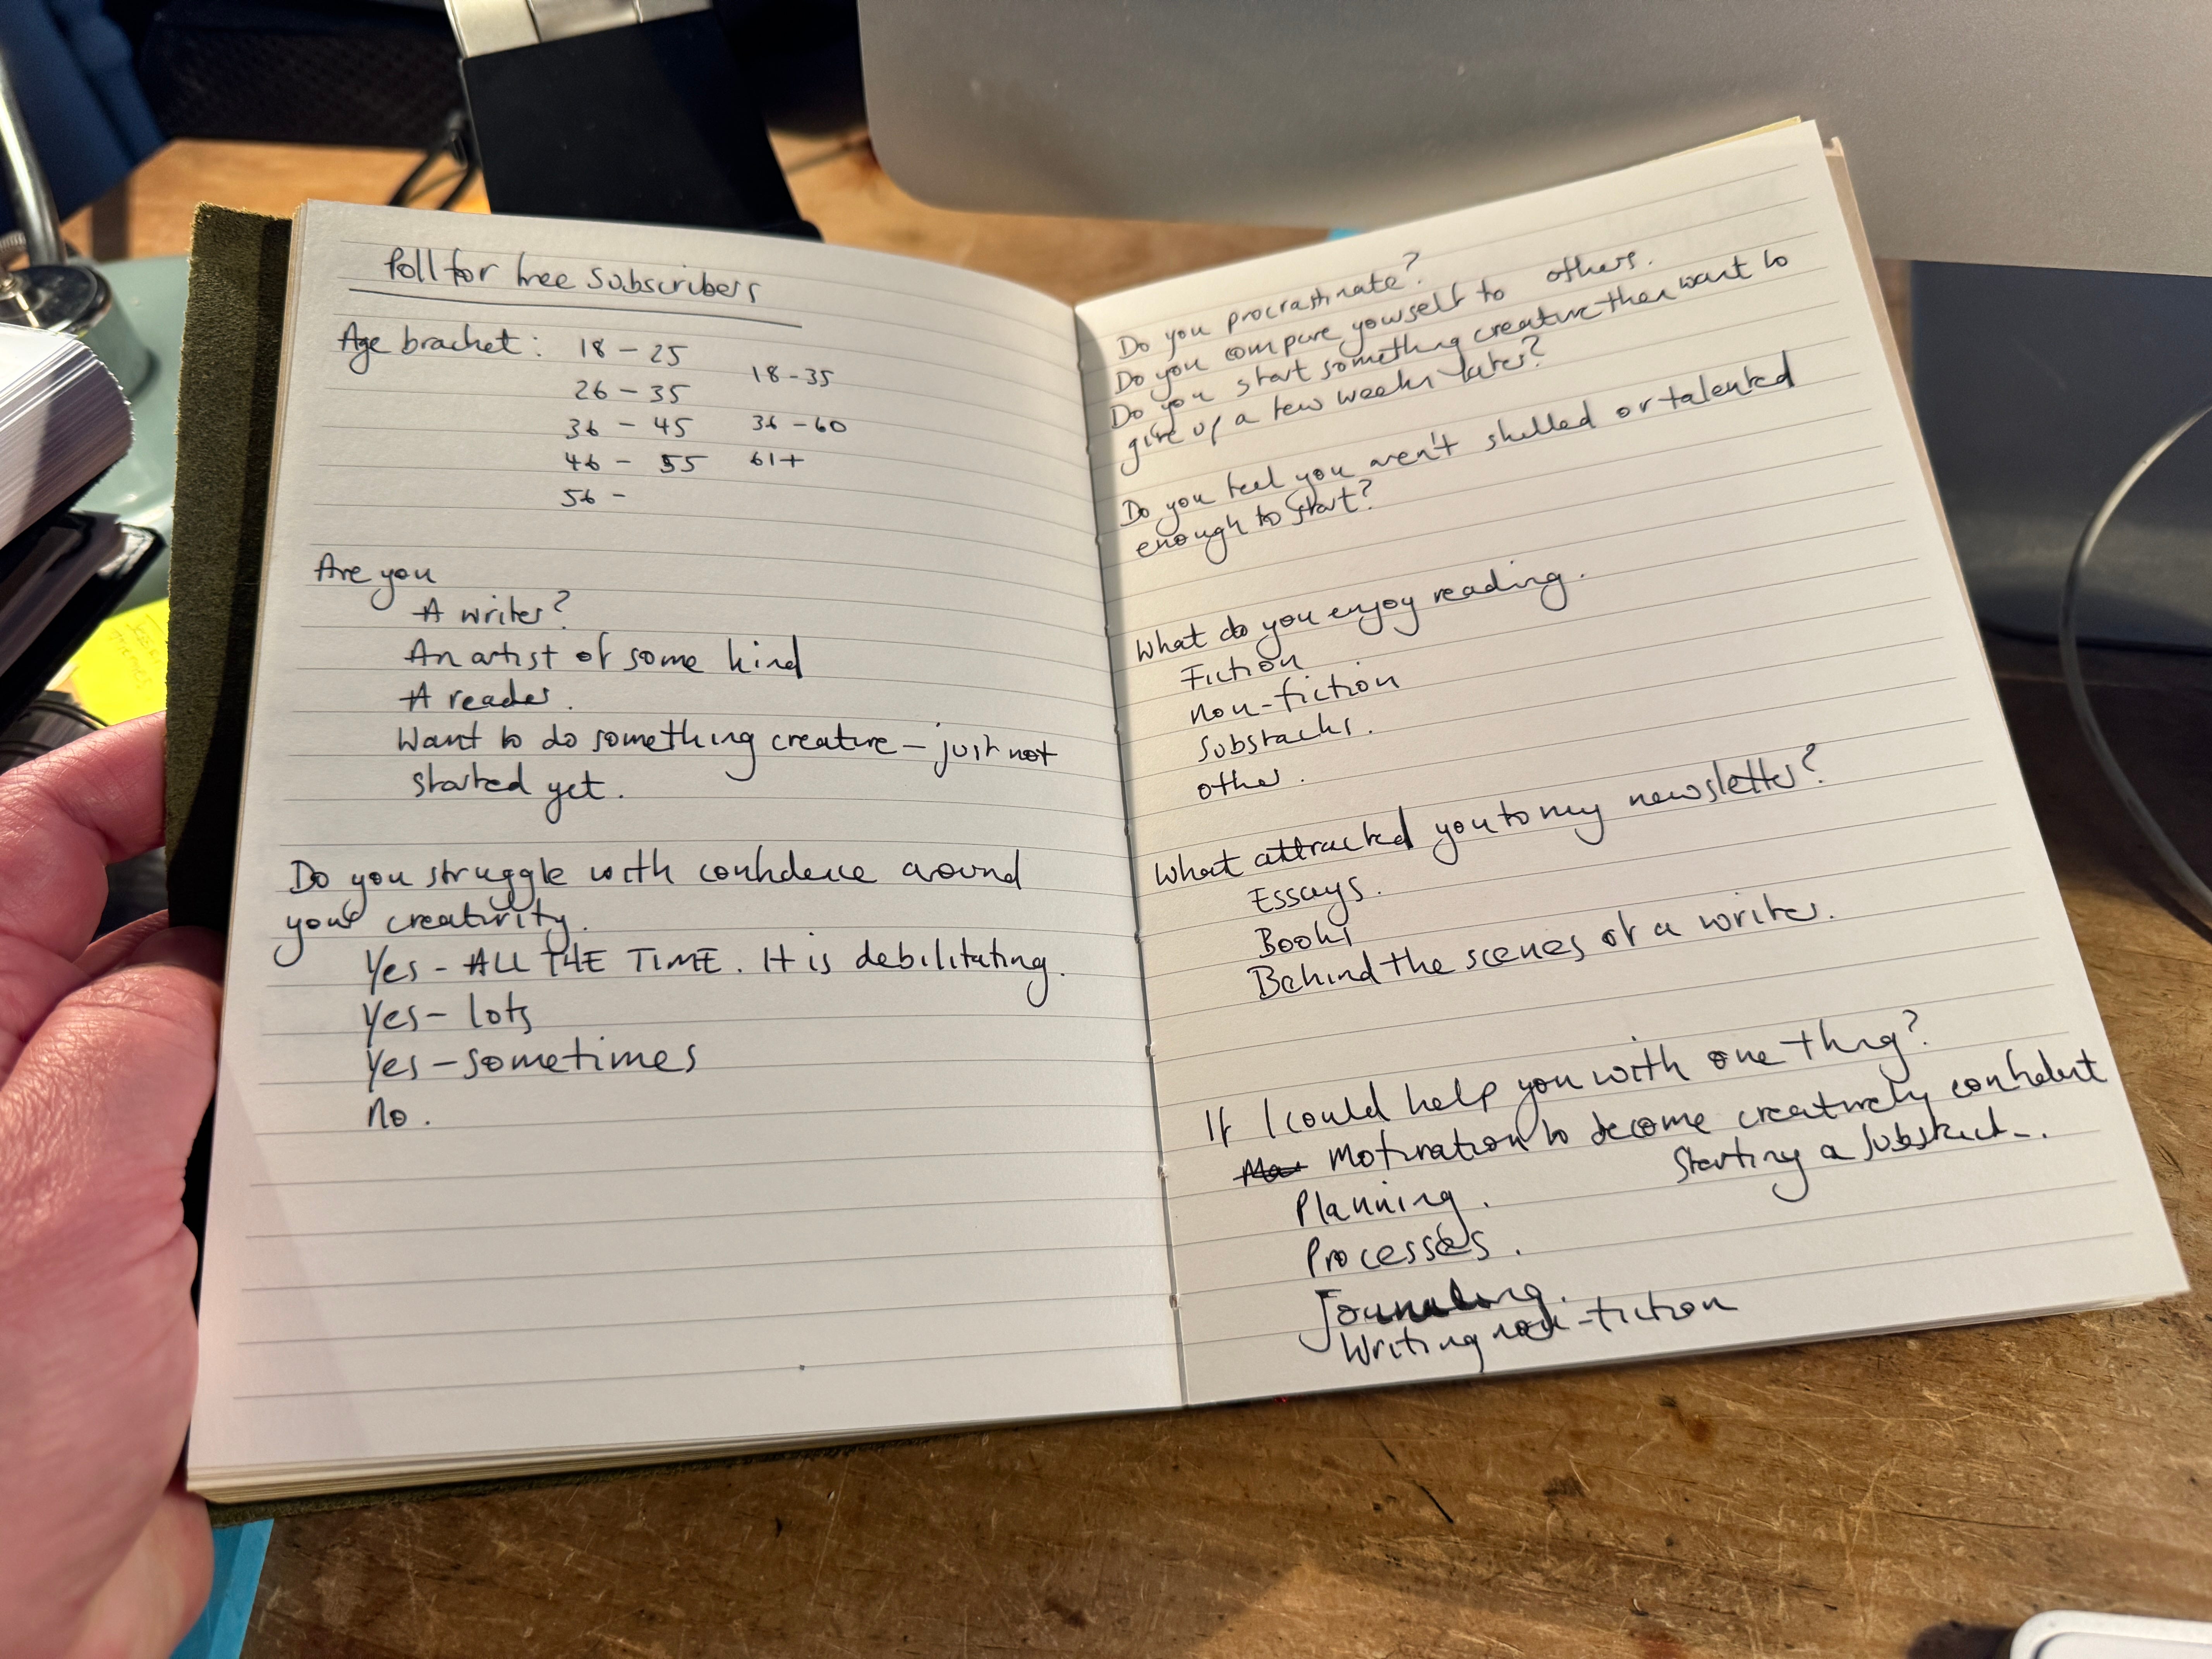 Poll for free subscribers
Age bracket: 18 - 25
18-35
26 - 35
36 - 45 36 - 60
46 - 55 61+
56 -
Are you
A writer?
An artist of some kind
A reader.
Want to do something creative - just not
started yet.
Do you struggle with confidence around
your creativity.
Yes - ALL THE TIME. It is debilitating.
Yes - lots
Yes - sometimes
No.
Do you procrastinate?
Do you compare yourself to others.
Do you start something creative then want to
give up a few weeks later?
Do you feel you aren't skilled or talented
enough to start?
What do you enjoy reading.
Fiction
Non-fiction
Substacks.
other.
What attracted you to my newsletter?
Essays.
Books
Behind the scenes of a writer.
If I could help you with one thing?
Motivation to become creatively confident
Starting a Substack..
Planning.
Processes.
Journaling.
Writing non-fiction